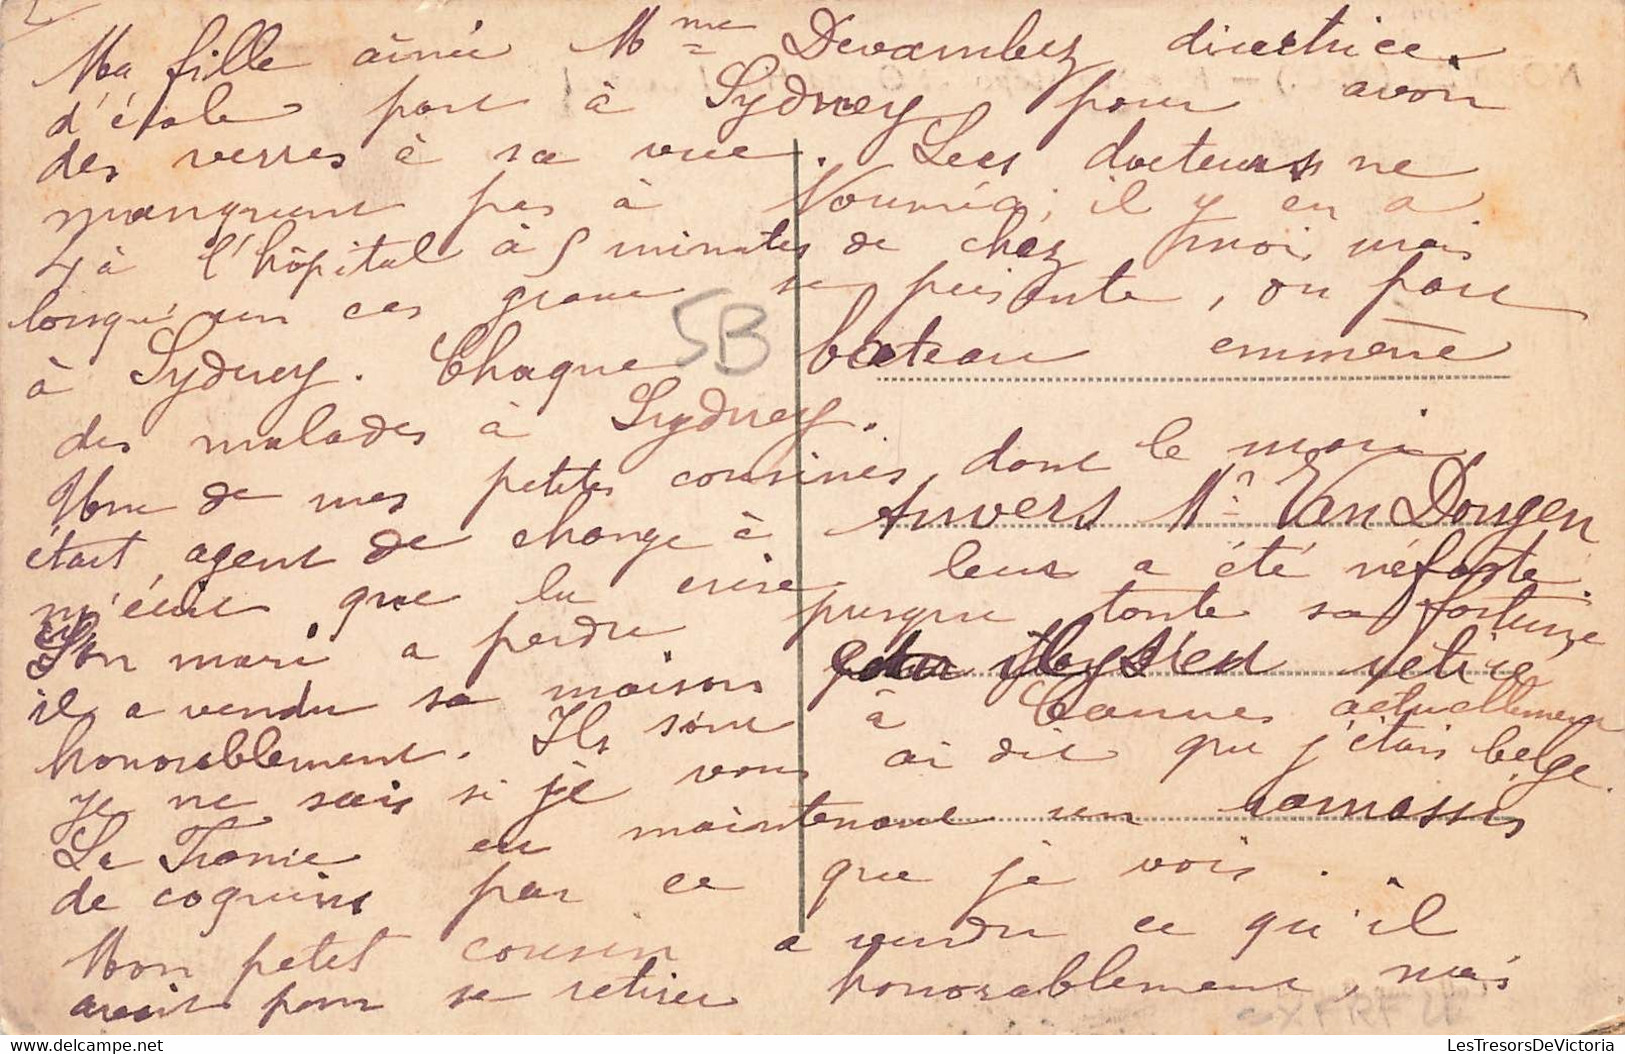 Ma fille ainée Mme Devambez directrice
d'école part à Sydney pour avoir
des verres à sa vue. Les docteurs ne
manquent pas à Nouméa; il y en a
4 à l'hôpital à 5 minutes de chez moi, mais
lorsqu'un cas grave se présente, on part
à Sydney. Chaque bateau emmène
des malades à Sydney.
Une de mes petites cousines, dont le mari
était agent de change à Anvers Mr Van Dongen
m'écrit que la crise leur a été néfaste.
Son mari a perdu presque toute sa fortune
il a vendu sa maison retiré
honorablement. Ils sont à Cannes actuellement
Je ne sais si je vous ai dit que j'étais belge.
La France est maintenant un ramassis
de coquins par ce que je vois.
Mon petit cousin a vendu ce qu'il
avait pour se retirer honorablement, mais
5B
LesTresorsDeVictoria.com